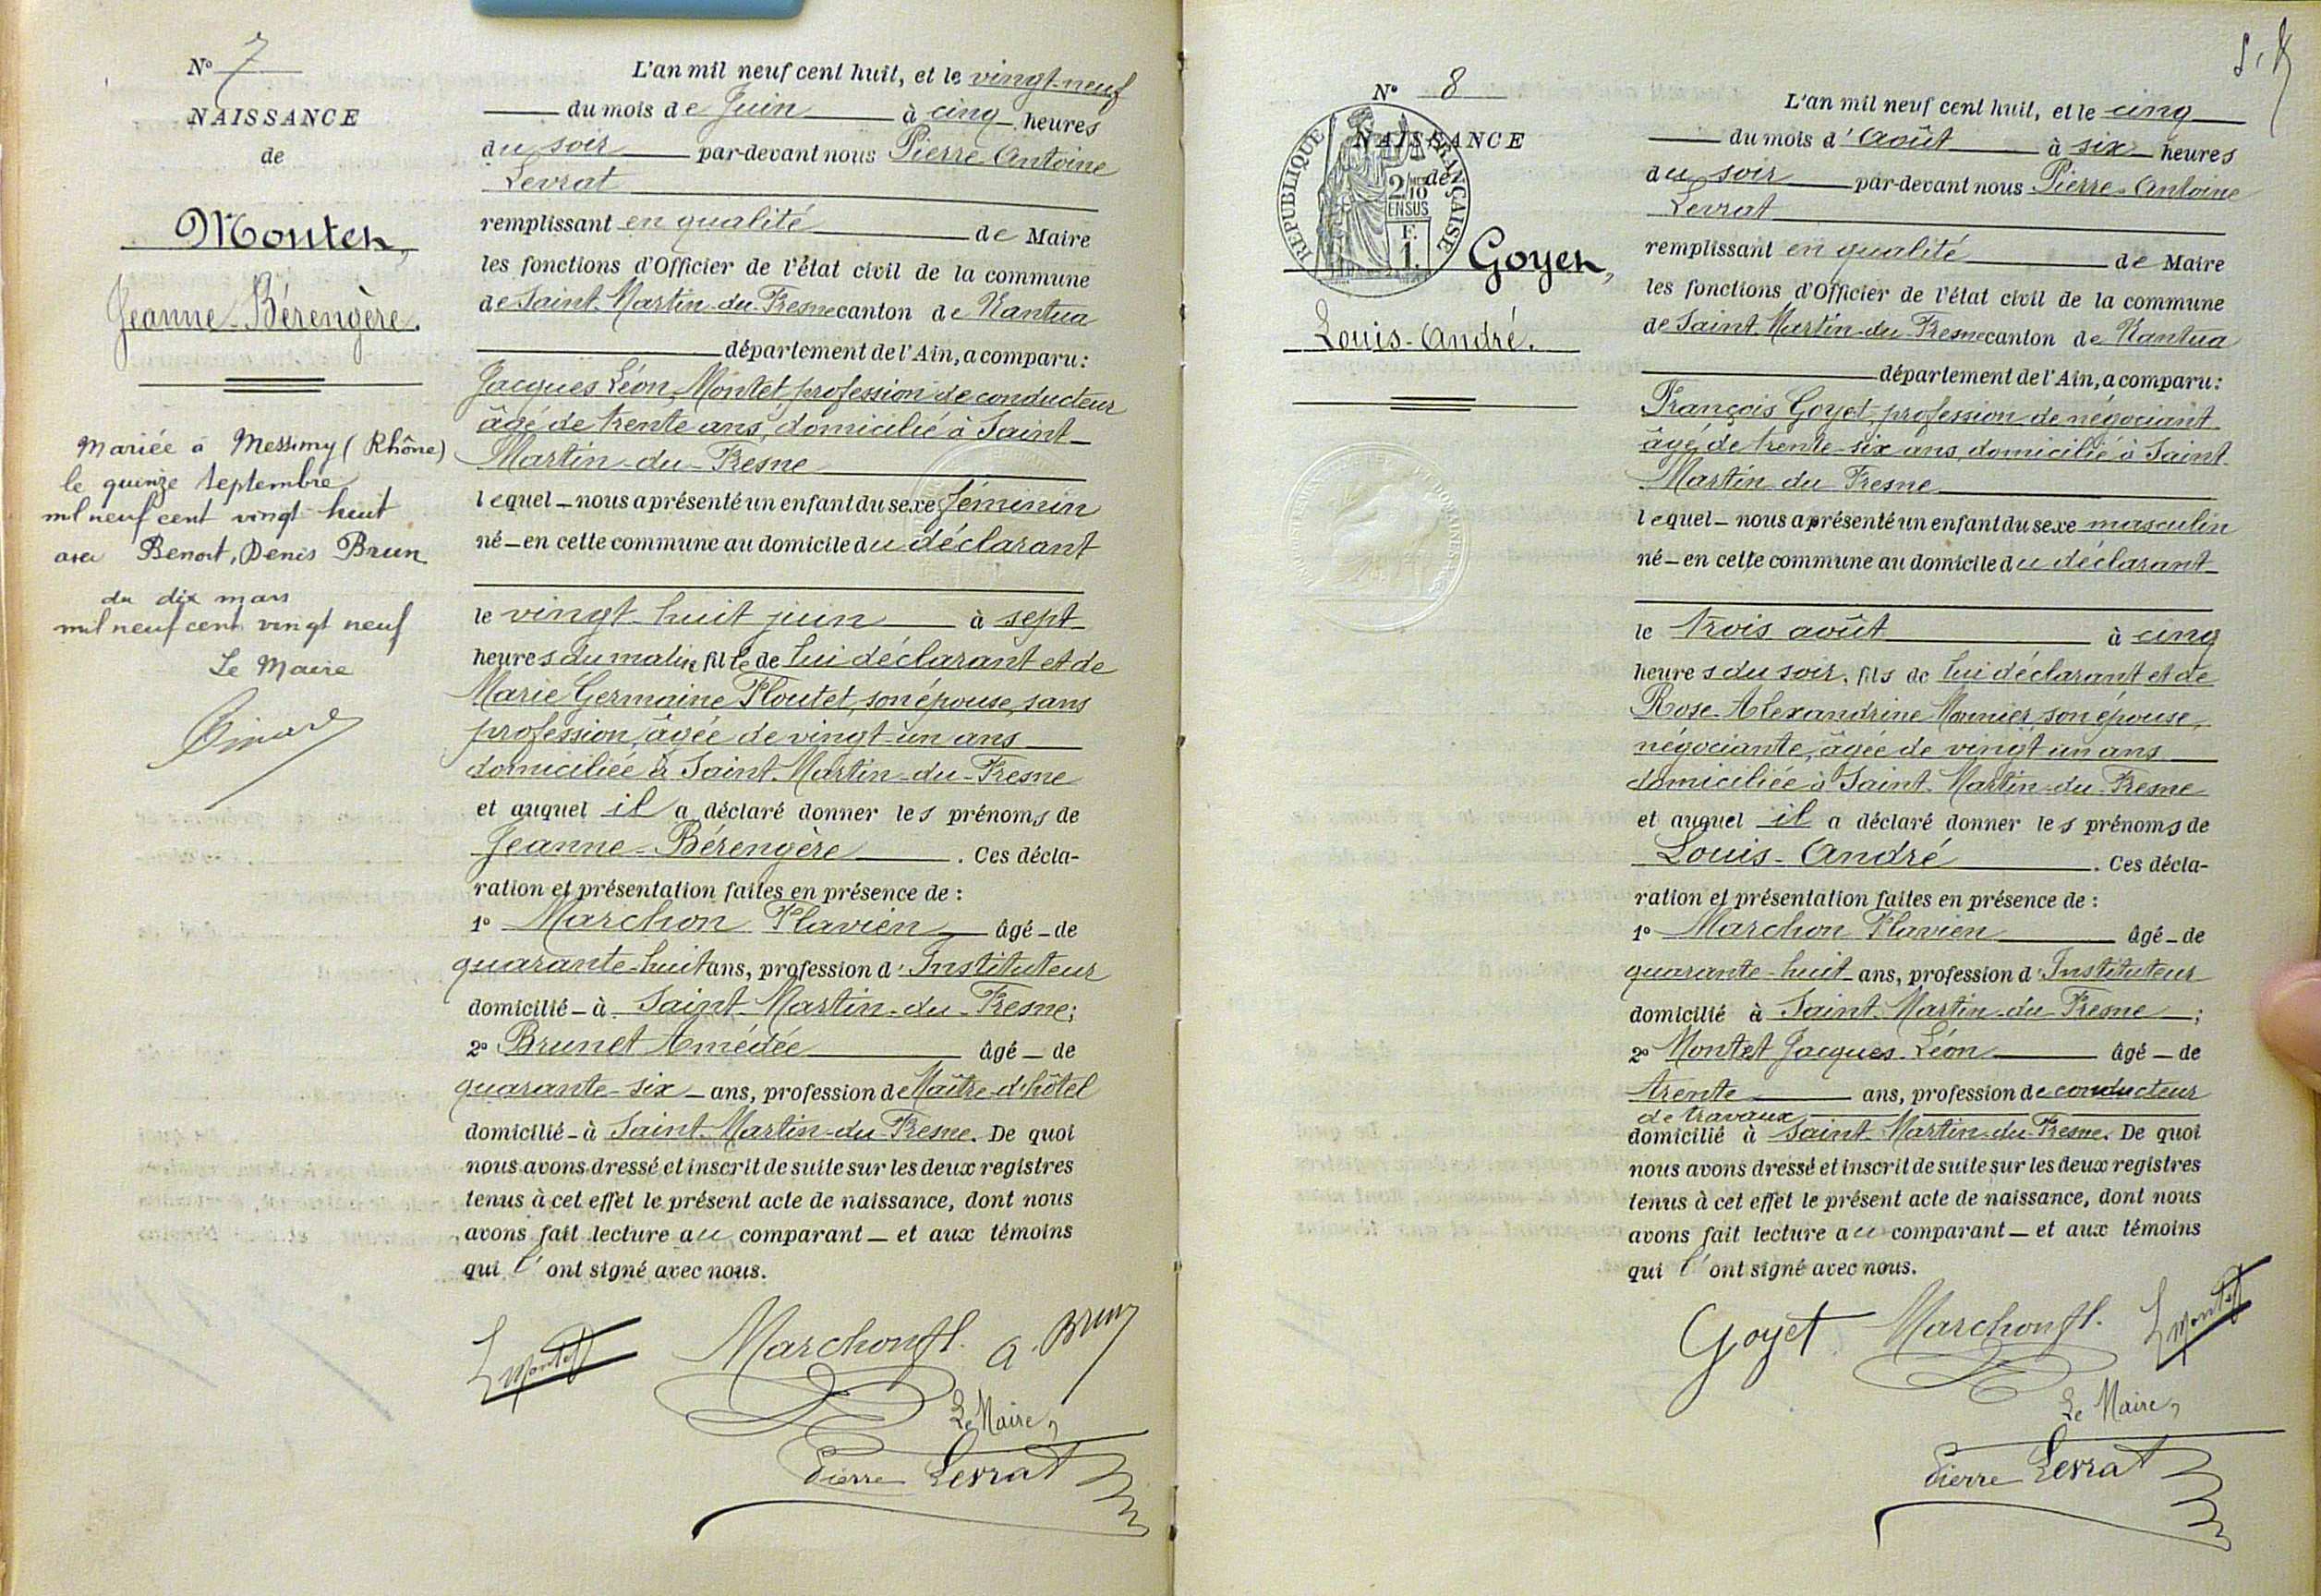 N° 7
NAISSANCE
de
Montet,
Jeanne-Bérengère.
Mariée à Messimy (Rhône)
le quinze septembre
mil neuf cent vingt huit
avec Benoit, Denis Brun
du dix mars
mil neuf cent vingt neuf
Le Maire
L'an mil neuf cent huit, et le vingt-neuf
du mois de Juin à cinq heures
du soir par-devant nous Pierre Antoine
Levrat
remplissant en qualité de Maire
les fonctions d'Officier de l'état civil de la commune
de Saint-Martin-du-Fresne canton de Nantua
département de l'Ain, a comparu:
Jacques Léon Montet, profession de conducteur
âgé de trente ans, domicilié à Saint-
Martin-du-Fresne
lequel nous a présenté un enfant du sexe féminin
né en cette commune au domicile du déclarant
le vingt-huit juin à sept
heures du matin fille de lui déclarant et de
Marie Germaine Floutet, son épouse, sans
profession, âgée de vingt-un ans
domiciliée à Saint-Martin-du-Fresne
et auquel il a déclaré donner les prénoms de
Jeanne-Bérengère. Ces décla-
ration et présentation faites en présence de :
1° Marchon Flavien âgé de
quarante-huit ans, profession d'Instituteur
domicilié à Saint-Martin-du-Fresne;
2° Brunet Amédée âgé de
quarante-six ans, profession de Maître-d'hôtel
domicilié à Saint-Martin-du-Fresne. De quoi
nous avons dressé et inscrit de suite sur les deux registres
tenus à cet effet le présent acte de naissance, dont nous
avons fait lecture au comparant et aux témoins
qui l'ont signé avec nous.
L Montet Marchon fl. A. Brun
Le Maire,
Pierre Levrat
N° 8
NAISSANCE
de
RÉPUBLIQUE FRANÇAISE
2/10
EN SUS
F.
1.
Goyet,
Louis-André.
L'an mil neuf cent huit, et le cinq
du mois d'Août à six heures
du soir par-devant nous Pierre-Antoine
Levrat
remplissant en qualité de Maire
les fonctions d'Officier de l'état civil de la commune
de Saint-Martin-du-Fresne canton de Nantua
département de l'Ain, a comparu:
François Goyet, profession de négociant
âgé de trente-six ans, domicilié à Saint-
Martin du Fresne
lequel nous a présenté un enfant du sexe masculin
né en cette commune au domicile du déclarant
le trois août à cinq
heures du soir, fils de lui déclarant et de
Rose-Alexandrine Monnier son épouse,
négociante, âgée de vingt un ans
domiciliée à Saint-Martin-du-Fresne
et auquel il a déclaré donner les prénoms de
Louis-André. Ces décla-
ration et présentation faites en présence de :
1° Marchon Flavien âgé de
quarante-huit ans, profession d'Instituteur
domicilié à Saint-Martin-du-Fresne;
2° Montet Jacques-Léon âgé de
trente ans, profession de conducteur
de travaux
domicilié à Saint-Martin-du-Fresne. De quoi
nous avons dressé et inscrit de suite sur les deux registres
tenus à cet effet le présent acte de naissance, dont nous
avons fait lecture au comparant et aux témoins
qui l'ont signé avec nous.
Goyet Marchon fl. L Montet
Le Maire,
Pierre Levrat